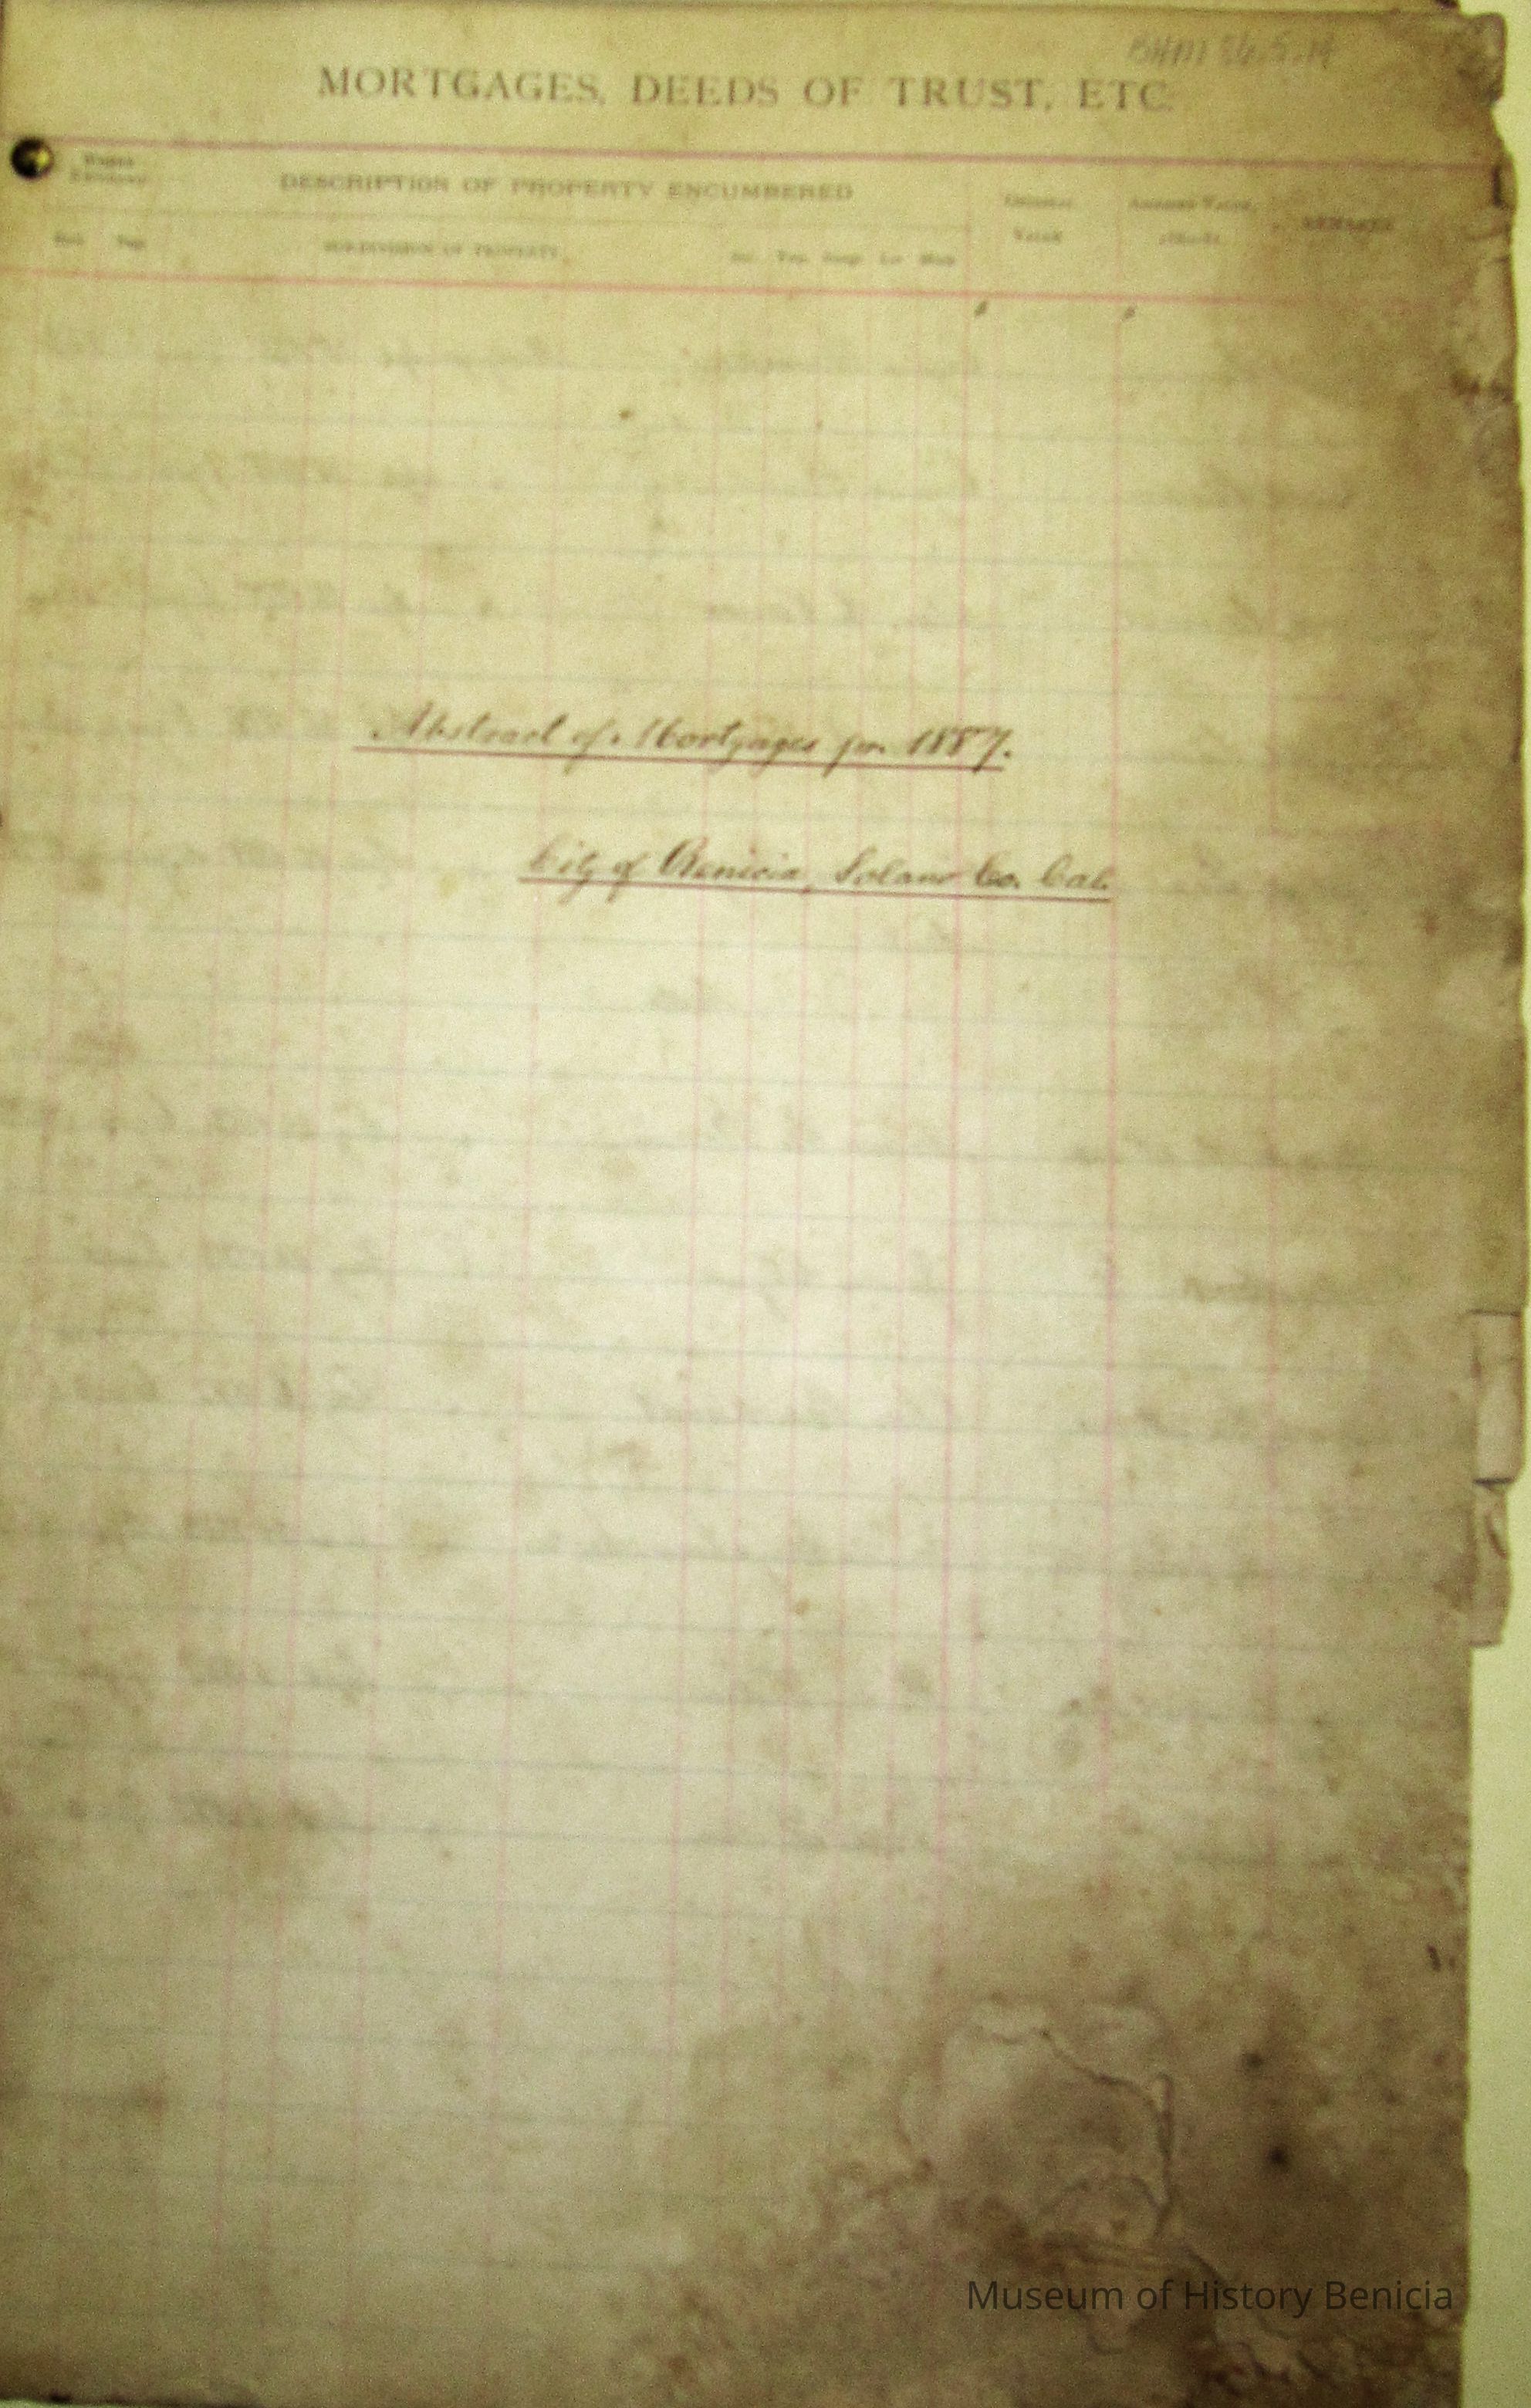 MORTGAGES, DEEDS OF TRUST, ETC.
DESCRIPTION OF PROPERTY ENCUMBERED
Value
REMARKS
Book Page
SUBDIVISION OF PROPERTY
Sec. Twp. Range Lot Block
Abstract of Mortgages for 1887.
City of Benicia, Solano Co. Cal.
Museum of History Benicia